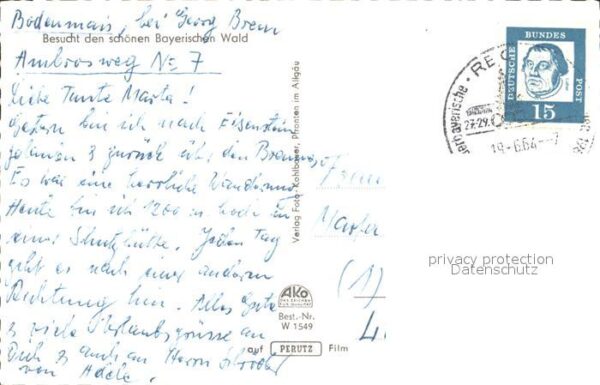 Bodenmais, bei Georg Brem
Besucht den schönen Bayerischen Wald
Ambrosweg No 7
Liebe Tante Marta!
Gestern bin ich nach Eisenstein
zurück über den
Es war eine herrliche Wanderung
Heute bin ich 1200 m hoch in
einer Schutzhütte. Jeden Tag
geht es nach einer anderen
Richtung hin. Alles Gute
& viele Urlaubsgrüsse an
Dich & auch an Herrn
von Adele.
Verlag Foto-Kohlbauer, Pfronten im Allgäu
AKO
Best.-Nr.
W 1549
auf PERUTZ Film
DEUTSCHE BUNDES POST
15
REG
27.-29.
19.-6.64.--7
(1)
privacy protection
Datenschutz